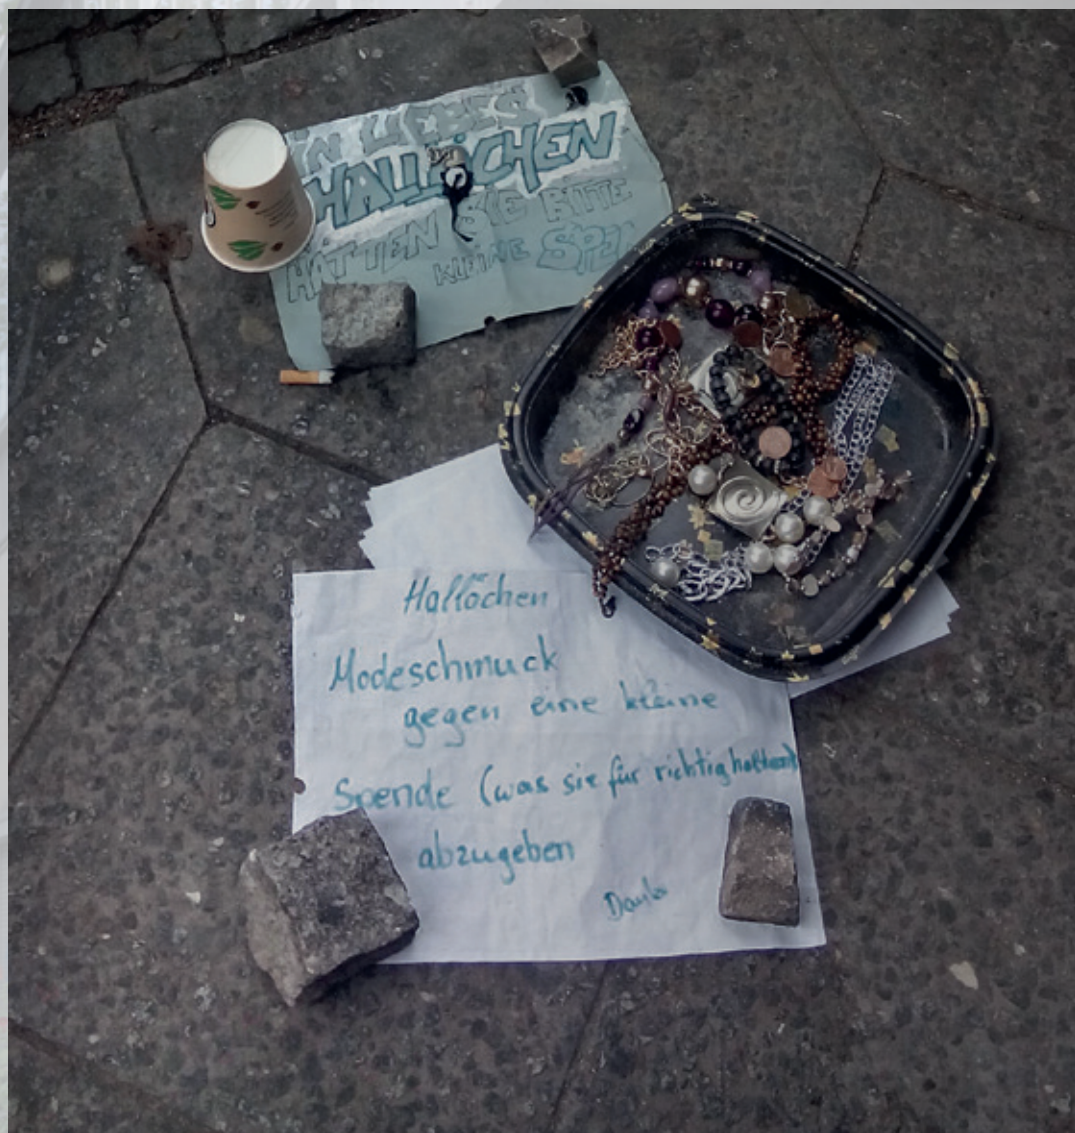 IN LIEBES
HALLÖCHEN
HÄTTEN SIE BITTE
KLEINE
Hallöchen
Modeschmuck
gegen eine kleine
Spende (was sie für richtig halten)
abzugeben